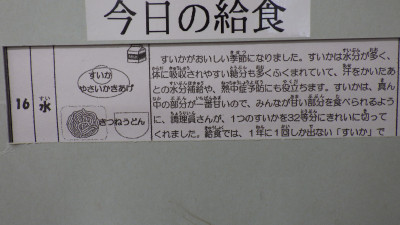 今日の給食
16 水
すいか
やさいかきあげ
きつねうどん
すいかがおいしい季節になりました。すいかは水分が多く、
体に吸収されやすい糖分も多くふくまれていて、汗をかいたあ
との水分補給や、熱中症予防にも役立ちます。すいかは、真ん
中の部分が一番甘いので、みんなが甘い部分を食べられるよう
に、調理員さんが、1つのすいかを32等分にきれいに切って
くれました。給食では、1年に1回しか出ない「すいか」で